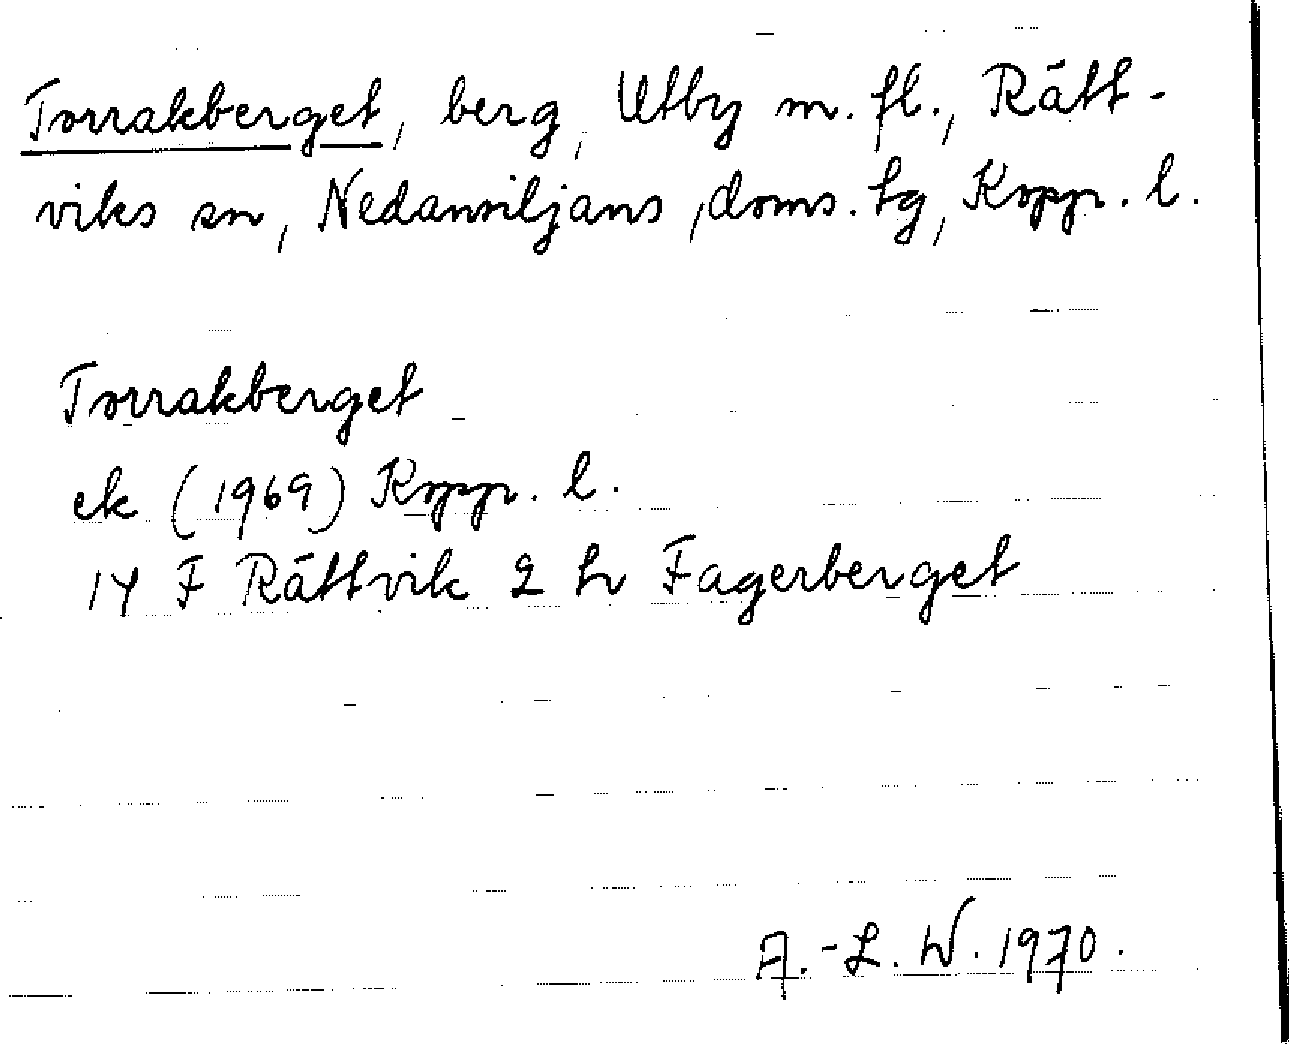 Torrakberget, berg, Utby m. fl., Rätt-
viks sn, Nedansiljans doms. hg, Kopp. l.
Torrakberget
ek (1969) Kopp. l.
14 F Rättvik 2 h Fagerberget
A.-L. W. 1970.